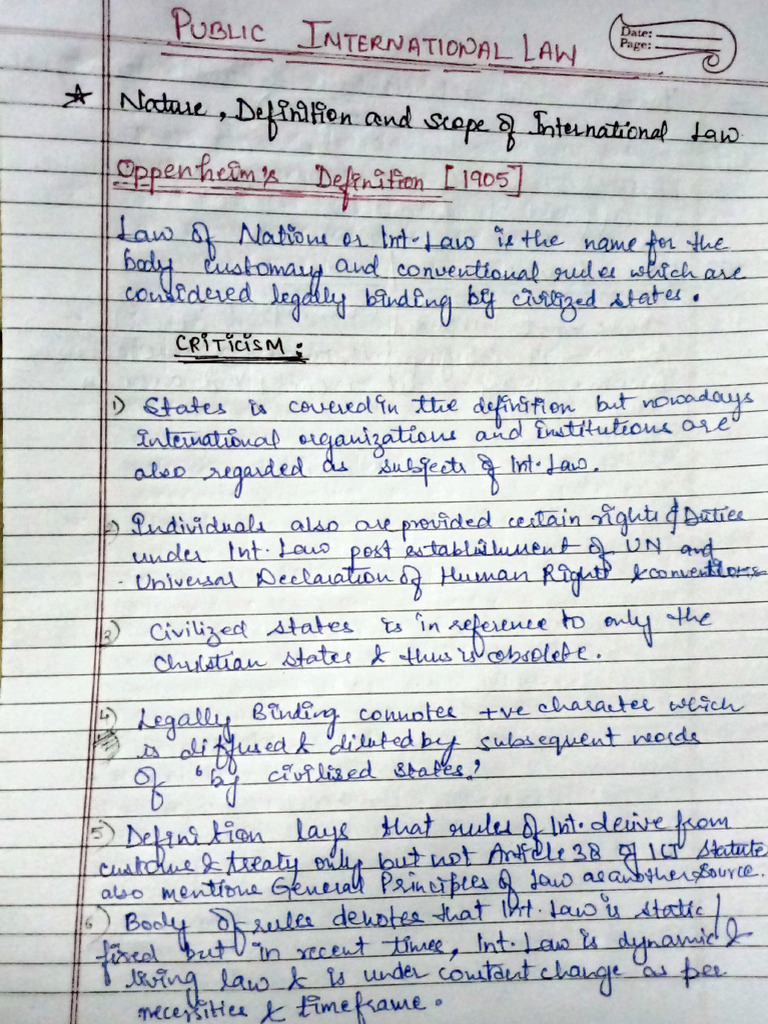 PUBLIC INTERNATIONAL LAW
Date:
Page:
☆ Nature, Definition and scope of International Law
Oppenheim's Definition [1905]
Law of Nations or Int. Law is the name for the
body customary and conventional rules which are
considered legally binding by civilized states.
CRITICISM:
1) States is covered in the definition but nowadays
International organizations and institutions are
also regarded as subjects of Int. Law.
2) Individuals also are provided certain rights & Duties
under Int. Law post establishment of UN and
Universal Declaration of Human Rights & conventions
3) Civilized states is in reference to only the
Christian states & thus is obsolete.
4) Legally Binding connotes +ve character which
is diffused & diluted by subsequent words
of 'by civilised states.'
5) Definition lays that rules of Int. derive from
custome & treaty only but not Article 38 of ICJ Statute
also mentions General Principles of Law as another source.
6) Body of rules denotes that Int. Law is static/
fixed but in recent times, Int. Law is dynamic &
living law & is under constant change as per
necessities & timeframe.